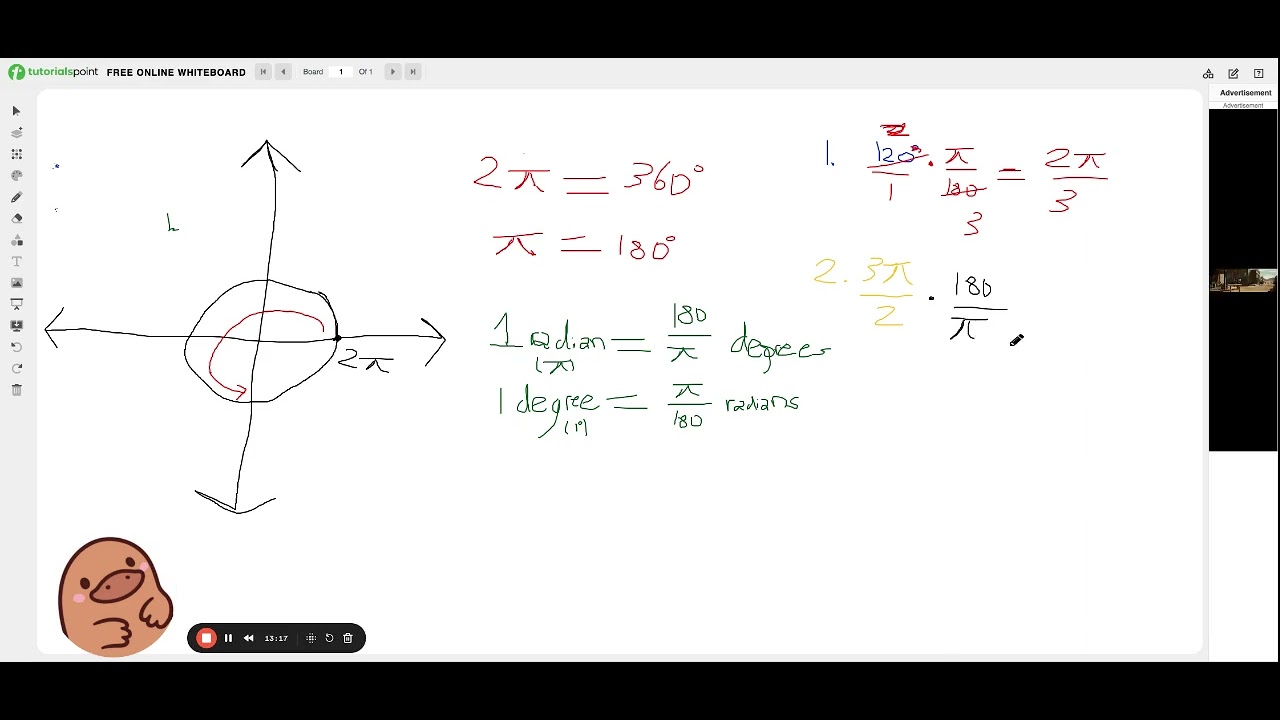 tutorialspoint FREE ONLINE WHITEBOARD Board 1 Of 1
Advertisement
Advertisement
2π = 360°
π = 180°
1 radian = 180/π degrees
(π)
1 degree = π/180 radians
(1°)
2π
L
1. 120°/1 · π/180 = 2π/3
2
3
2. 3π/2 · 180/π
13:17